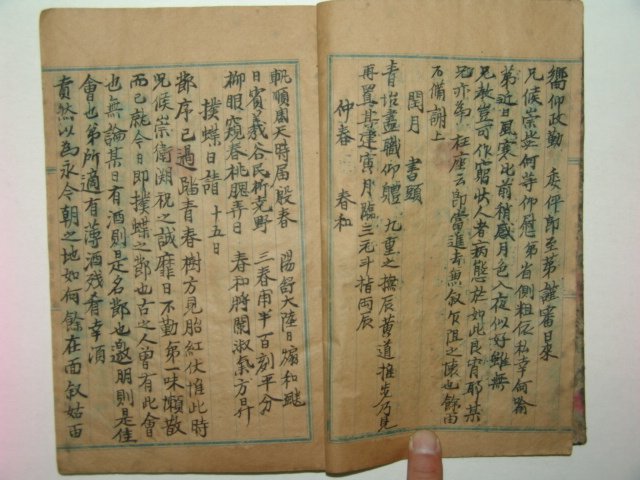 嚮仰政勤 委伻即至第謹審日來
兄候崇毖何等仰慰第省側粗依私幸何喩
第近日風寒比前稍感月色入夜似好雖無
兄教豈可作窮狀人者病態於如此良宵耶某
兄亦第 枉座云即當進去無敍欠阻之懷也餘由
不備謝上
閏月 書頭
青 盡職仰體 九重之撫辰黃道推步乃見
再置其建寅月臨三元斗指兩辰
仲春 春和
軌順周天時屆殷春 陽舒大陸日煽和颸
日賓羲谷民析堯野 三春甫半百刻平分
柳眼窺春桃腮弄日 春和將闌淑氣方昇
撲蝶日詣 十五日
節序已過踏青春樹方見胎紅伏惟此時
兄候崇衛溯祝之誠靡日不勤第一味懶散
而已就今日即撲蝶之節也古之人曾有此會
也無論某日有酒則是名節也邀朋則是佳
會也第所適有薄酒殘肴幸須
賁然以爲永今朝之地如何餘在面敍姑西